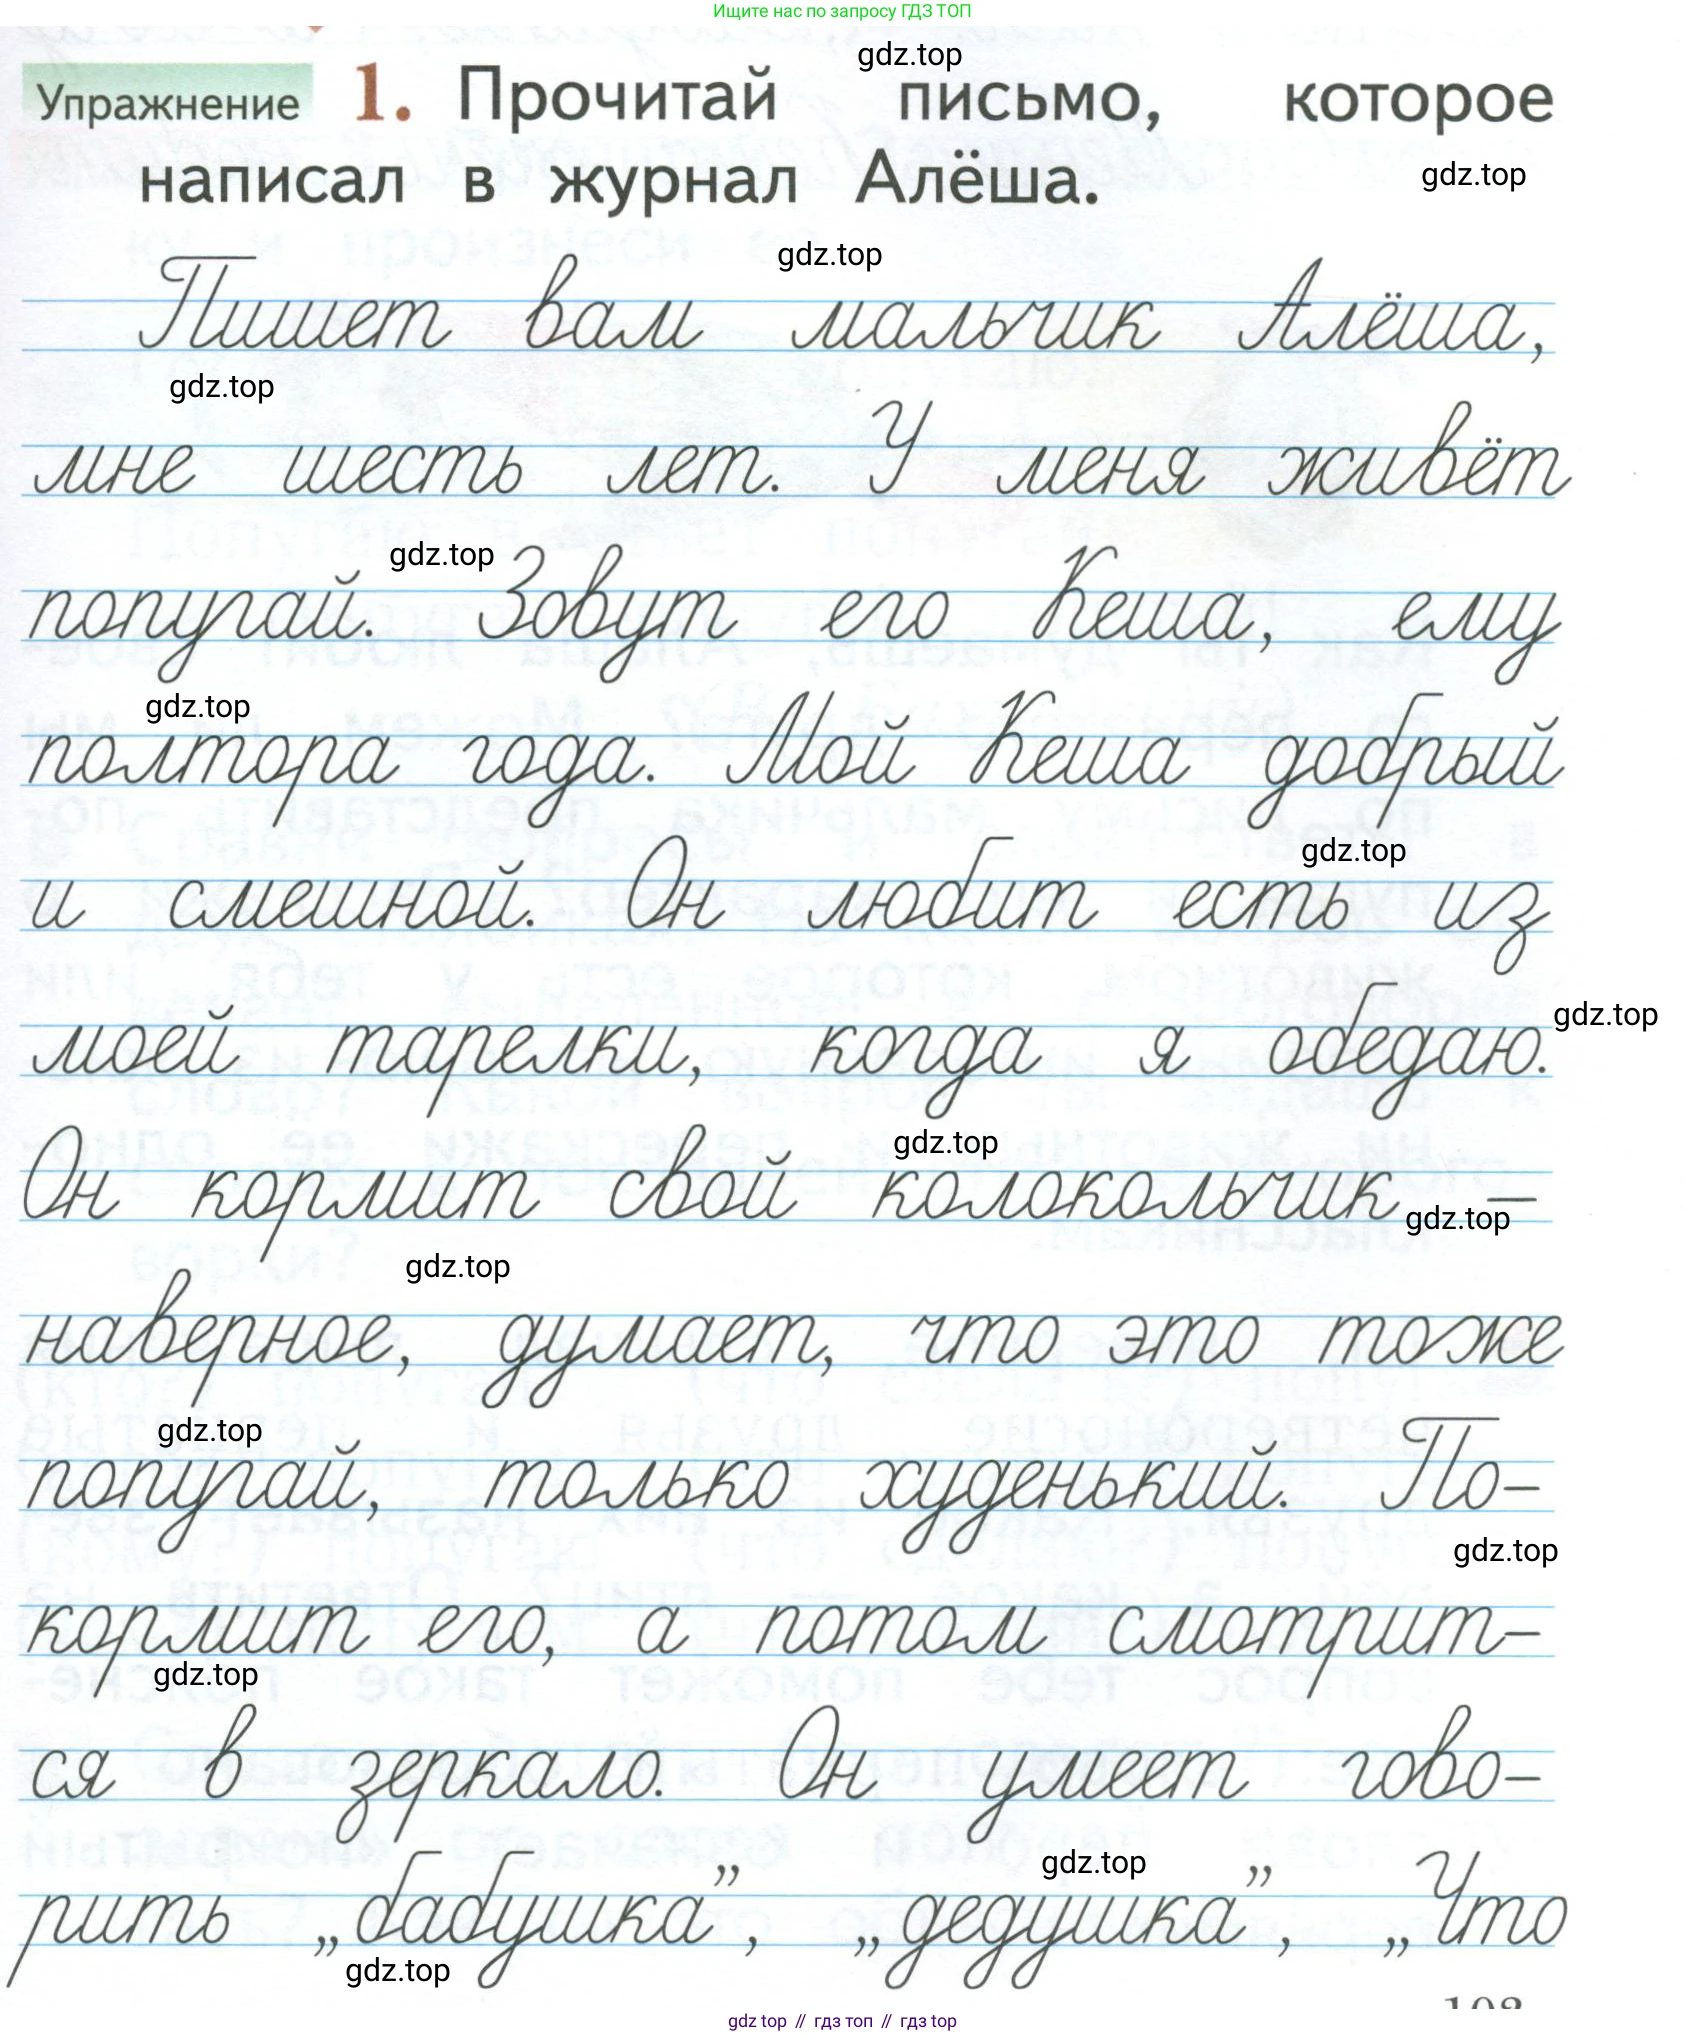 Ищите нас по запросу ГДЗ ТОП
gdz.top
Упражнение 1. Прочитай письмо, которое
написал в журнал Алёша.
gdz.top
gdz.top
Пишет вам мальчик Алёша,
gdz.top
мне шесть лет. У меня живёт
gdz.top
попугай. Зовут его Кеша, ему
gdz.top
полтора года. Мой Кеша добрый
gdz.top
и смешной. Он любит есть из
gdz.top
моей тарелки, когда я обедаю.
gdz.top
Он кормит свой колокольчик –
gdz.top
gdz.top
наверное, думает, что это тоже
gdz.top
попугай, только худенький. По-
gdz.top
кормит его, а потом смотрит-
gdz.top
ся в зеркало. Он умеет гово-
gdz.top
рить „бабушка”, „дедушка”, „Что
gdz.top
gdz top // гдз топ // gdz top